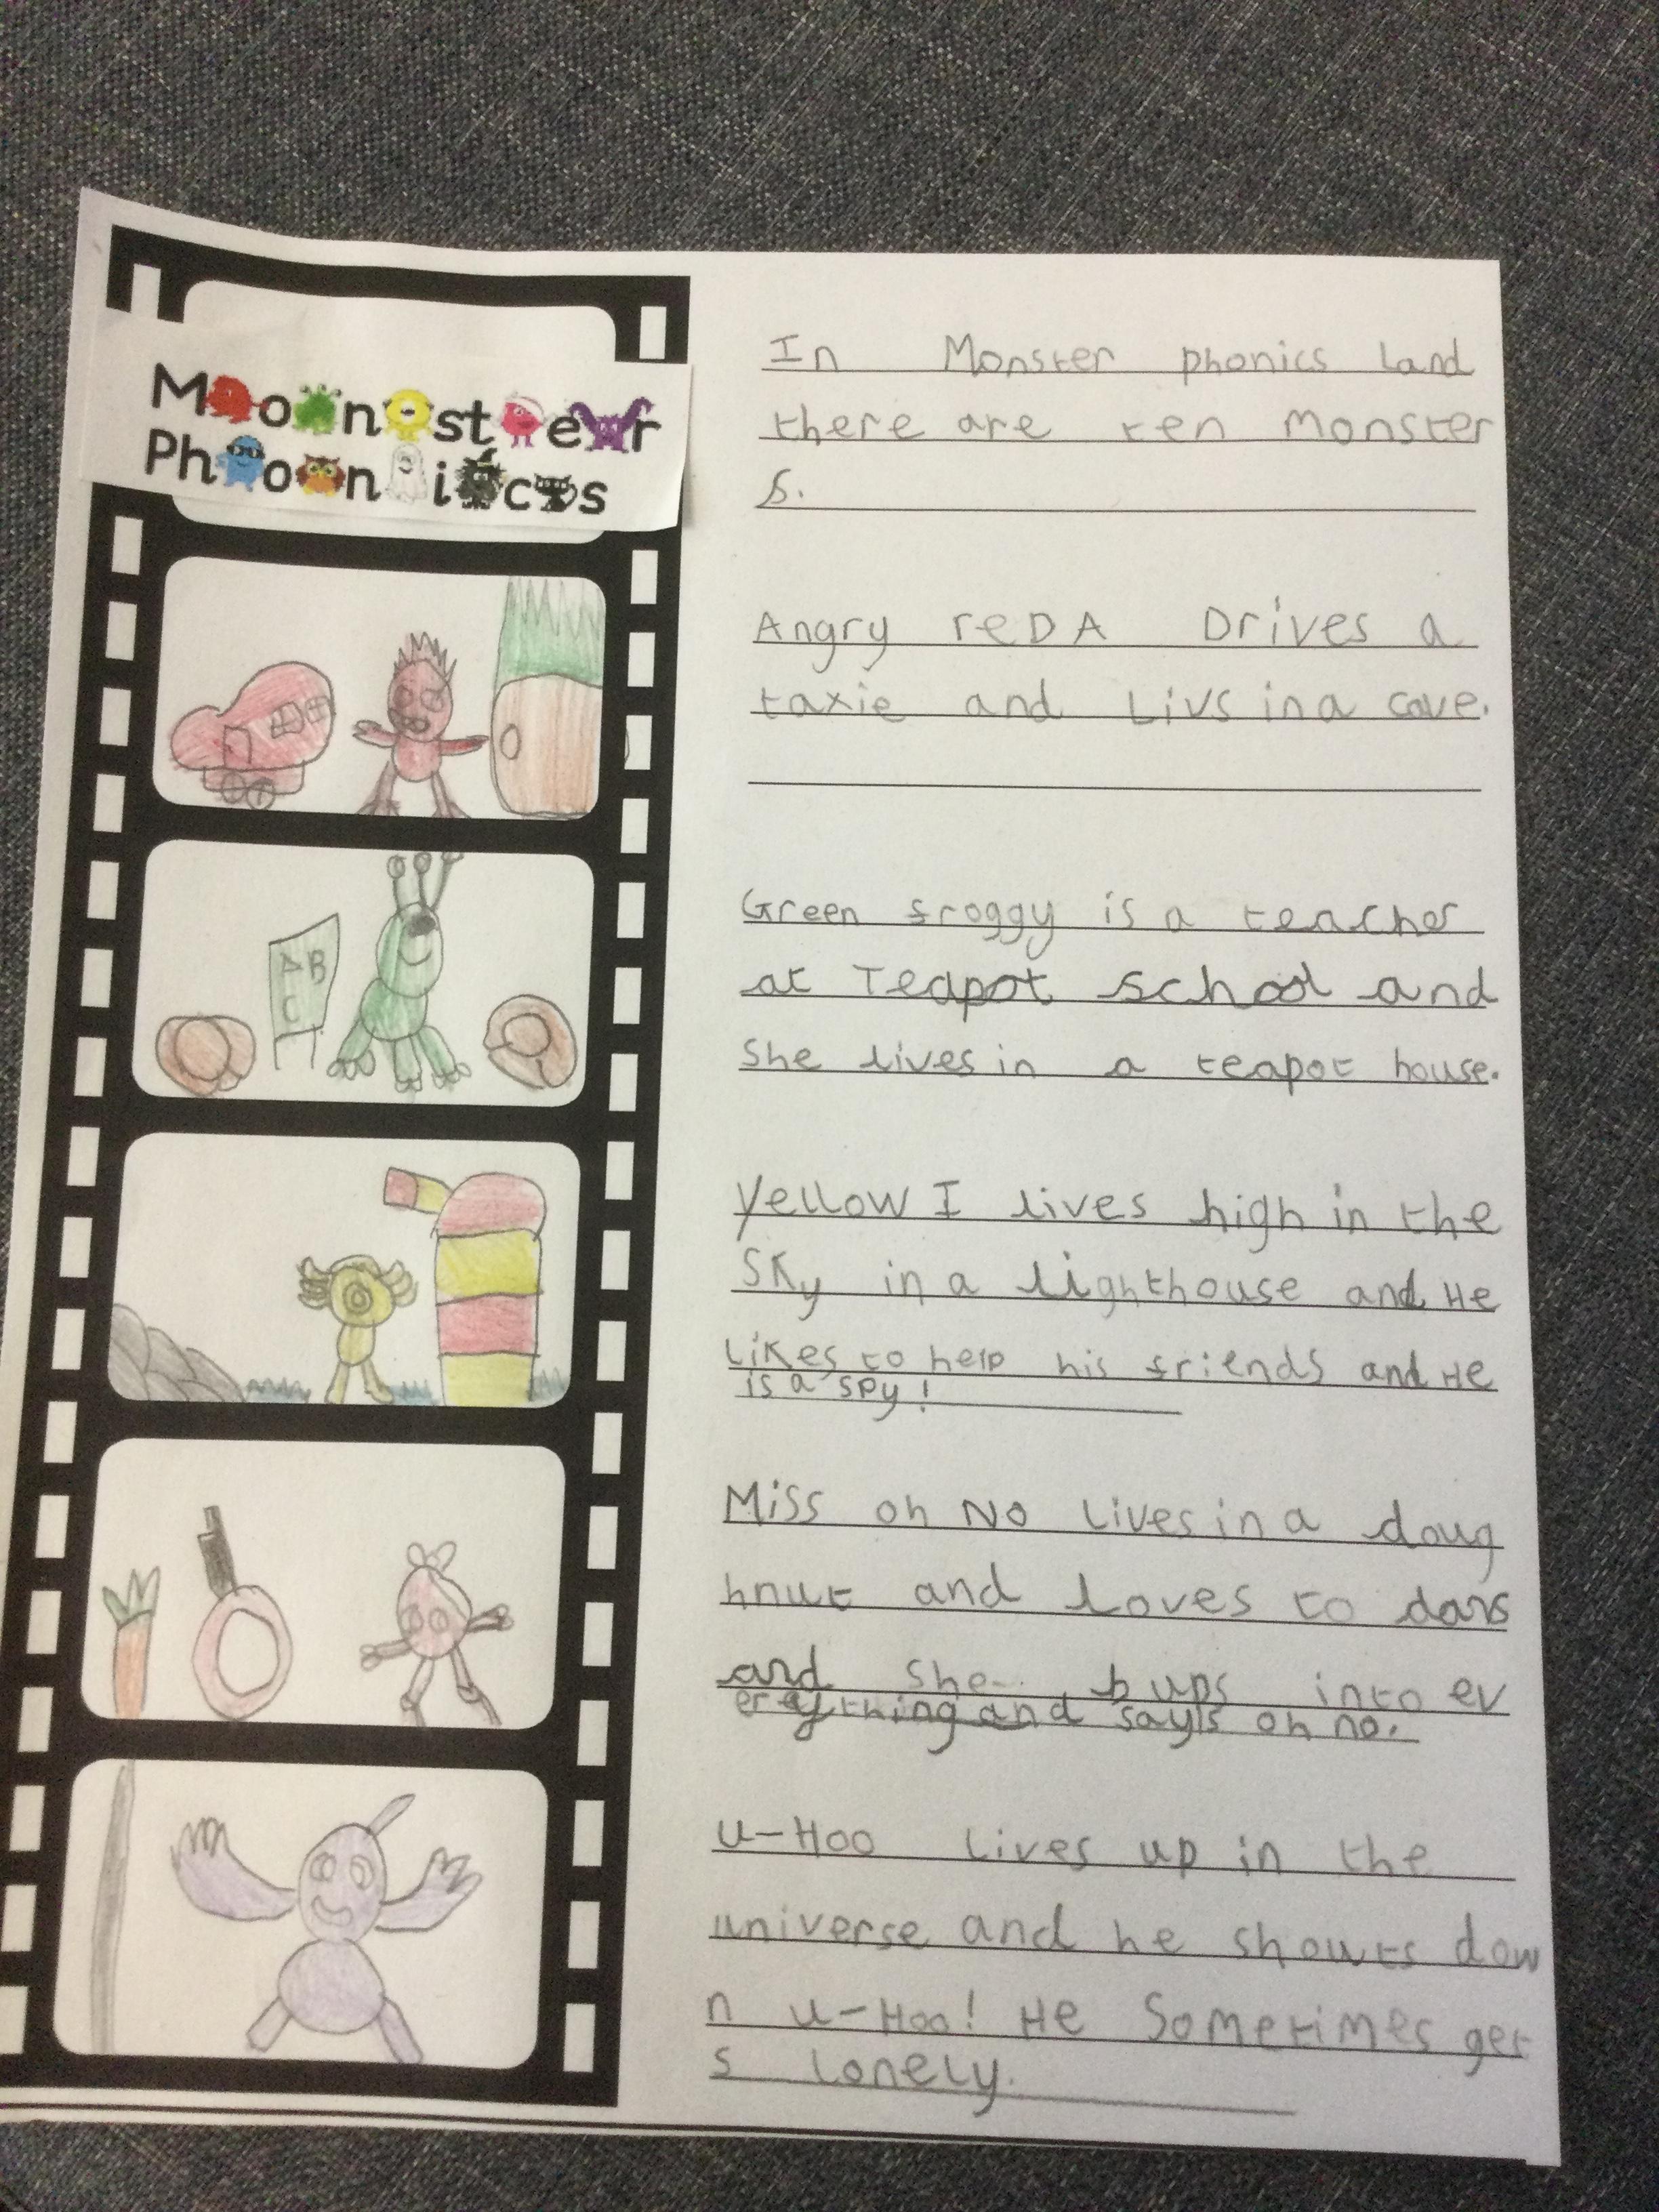 Monster
Phonics
In Monster phonics Land
there are ten Monster
s.
Angry reD A Drives a
taxie and Livs in a cave.
A B
C
Green froggy is a teacher
at Teapot school and
She lives in a teapot house.
Yellow I lives high in the
SKy in a lighthouse and He
Likes to help his friends and He
is a spy!
Miss oh No Lives in a doug
hnut and loves to dans
and she bups into ev
erything and says oh no.
U-Hoo Lives up in the
universe and he showts dow
n u-Hoo! He Sometimes get
s lonely.